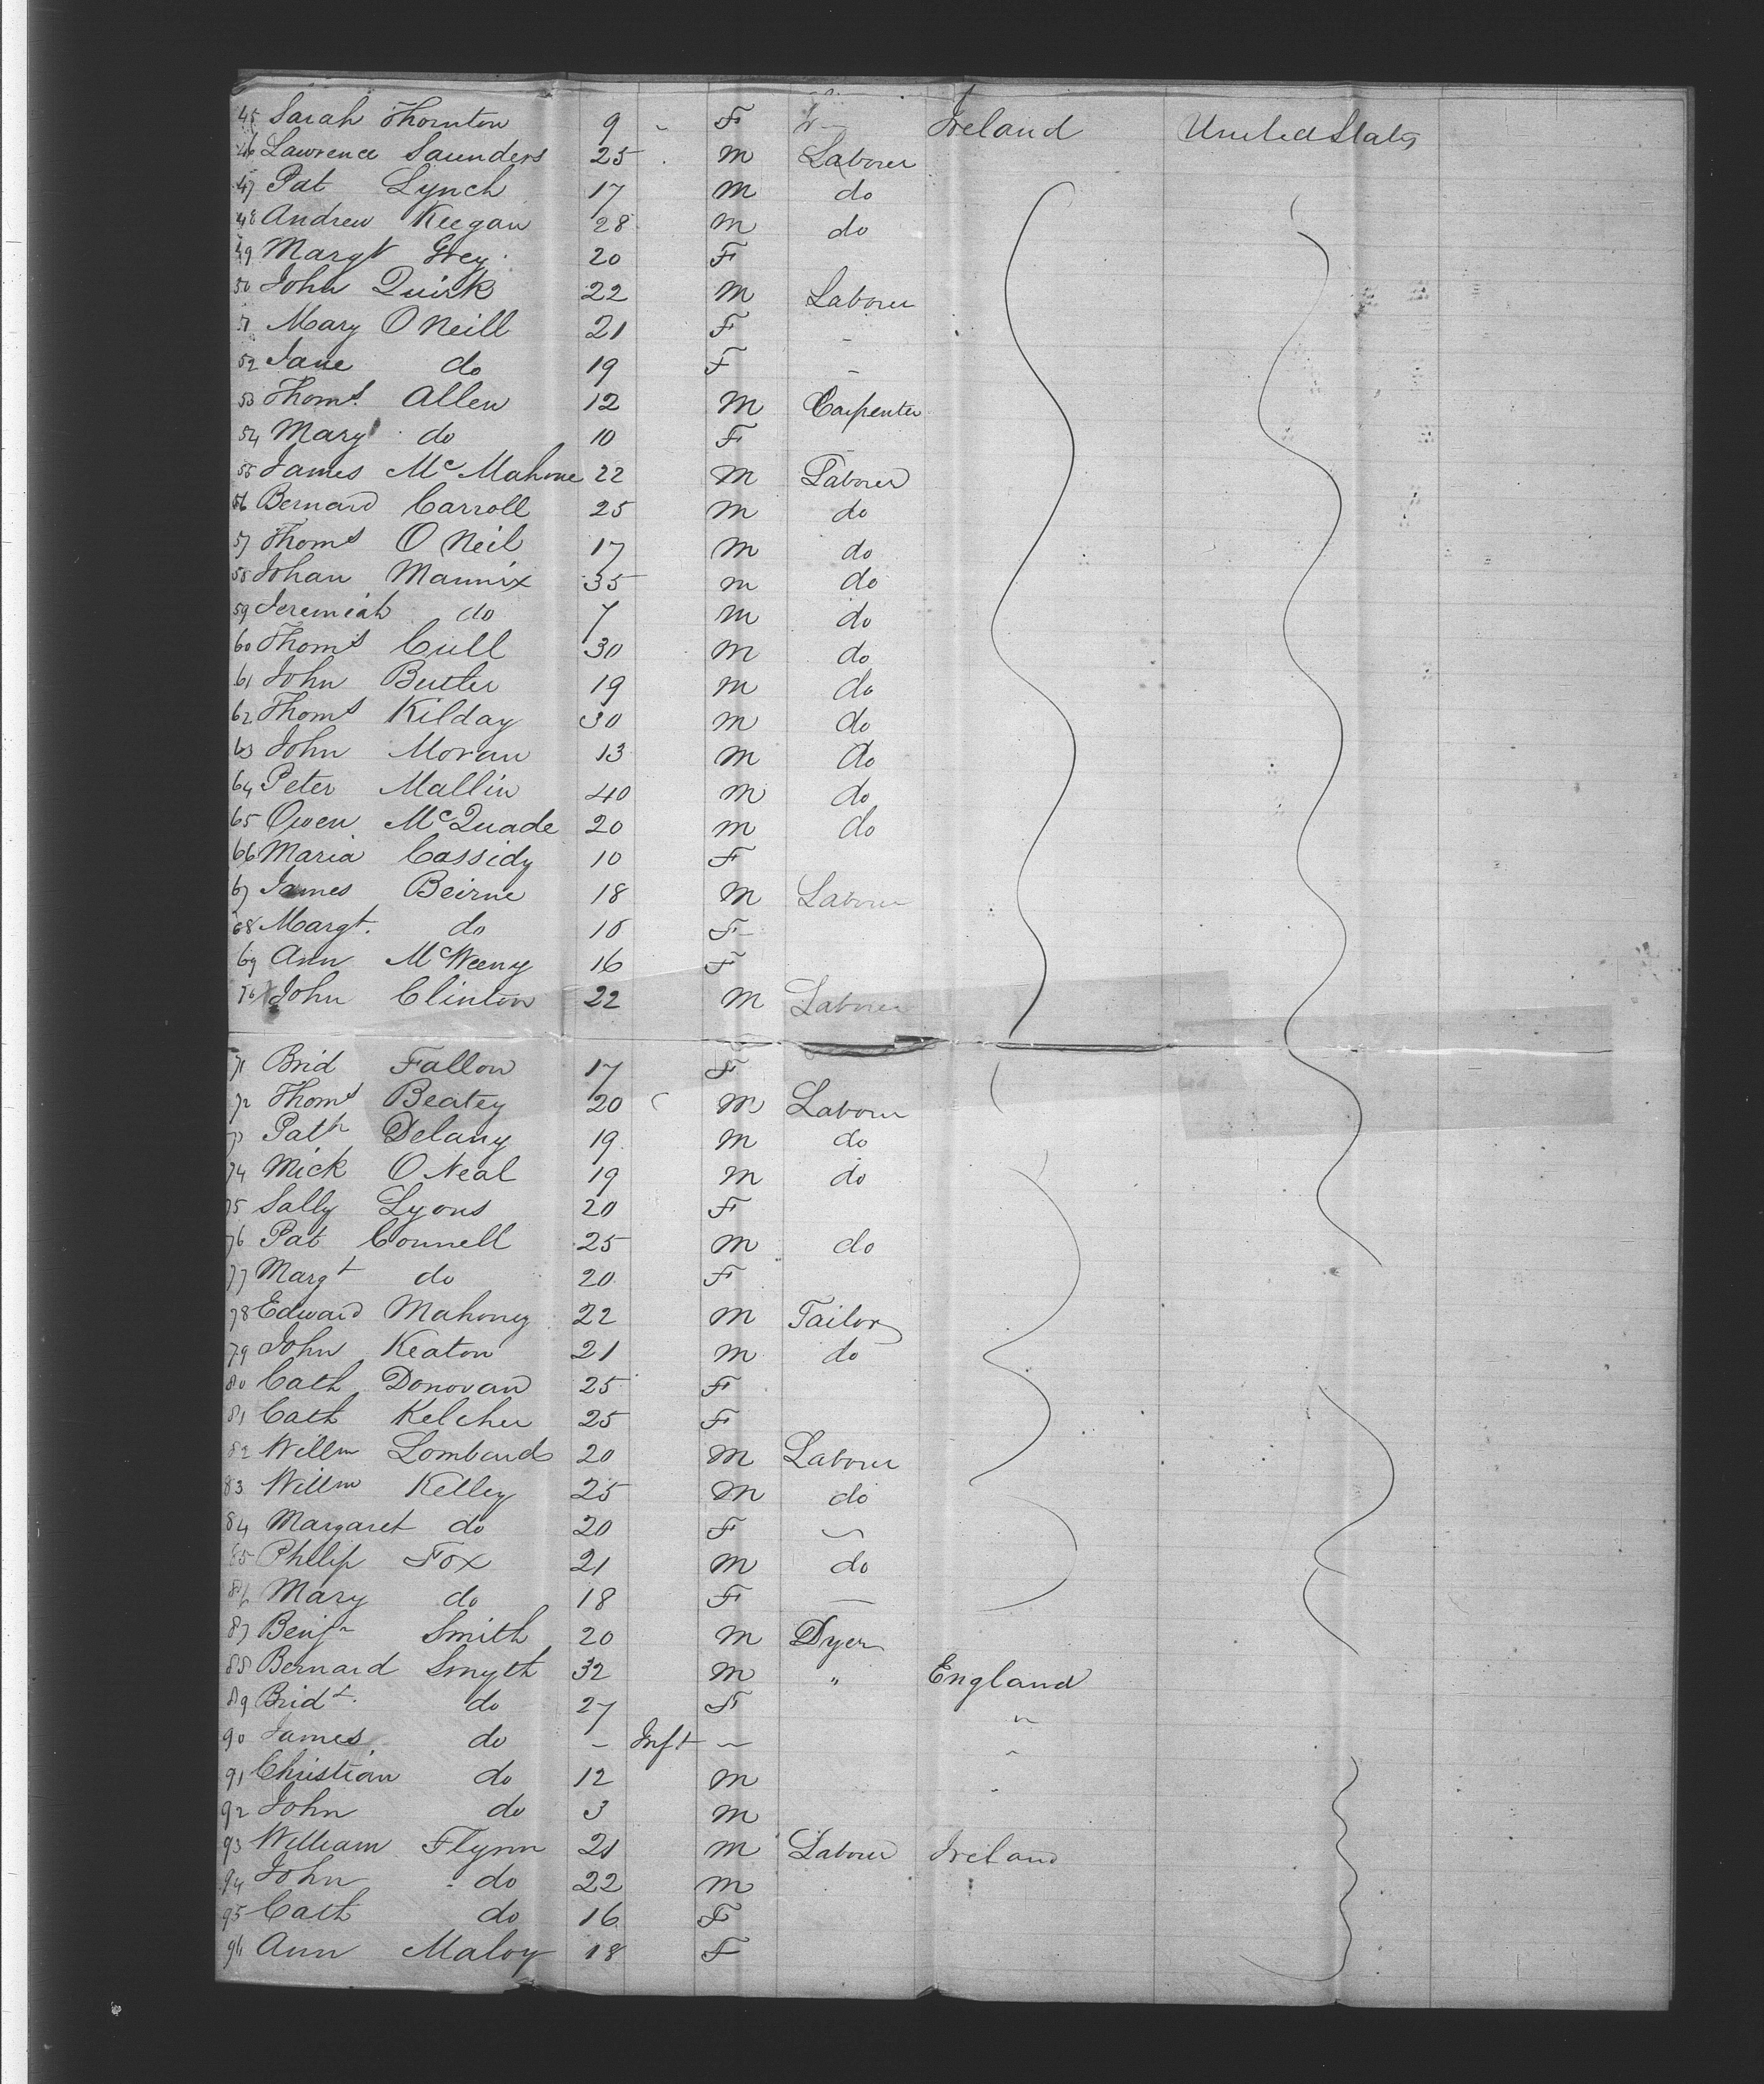 45 Sarah Thornton 9 - F Ireland United States
46 Lawrence Saunders 25 M Laborer
47 Pat Lynch 17 M do
48 Andrew Keegan 28 M do
49 Margt Grey 20 F
50 John Quirk 22 M Laborer
51 Mary O Neill 21 F -
52 Jane do 19 F -
53 Thoms Allen 12 M Carpenter
54 Mary do 10 F -
55 James Mc Mahone 22 M Laborer
56 Bernard Carroll 25 M do
57 Thoms O Neil 17 M do
58 Johan Mannix 35 M do
59 Jeremiah do 7 M do
60 Thoms Cull 30 M do
61 John Butler 19 M do
62 Thoms Kilday 30 M do
63 John Moran 13 M do
64 Peter Mallin 40 M do
65 Owen McQuade 20 M do
66 Maria Cassidy 10 F
67 James Beirne 18 M Laborer
68 Margt. do 10 F -
69 Ann McWeeny 16 F
70 John Clinton 22 M Laborer
71 Brid Fallon 17 F
72 Thoms Beatey 20 M Laborer
73 Patk Delany 19 M do
74 Mick O Neal 19 M do
75 Sally Lyons 20 F
76 Pat Connell 25 M do
77 Margt do 20 F
78 Edward Mahoney 22 M Tailor
79 John Keaton 21 M do
80 Cath Donovan 25 F
81 Cath Kelcher 25 F
82 Willm Lombard 20 M Laborer
83 Willm Kelley 25 M do
84 Margaret do 20 F -
85 Philip Fox 21 M do
86 Mary do 18 F -
87 Benjn Smith 20 M Dyer
88 Bernard Smyth 32 M " England
89 Bridt. do 27 F "
90 James do - Inft - "
91 Christian do 12 M
92 John do 3 M
93 William Flynn 21 M Laborer Ireland
94 John do 22 M
95 Cath do 16 F
96 Ann Maloy 18 F